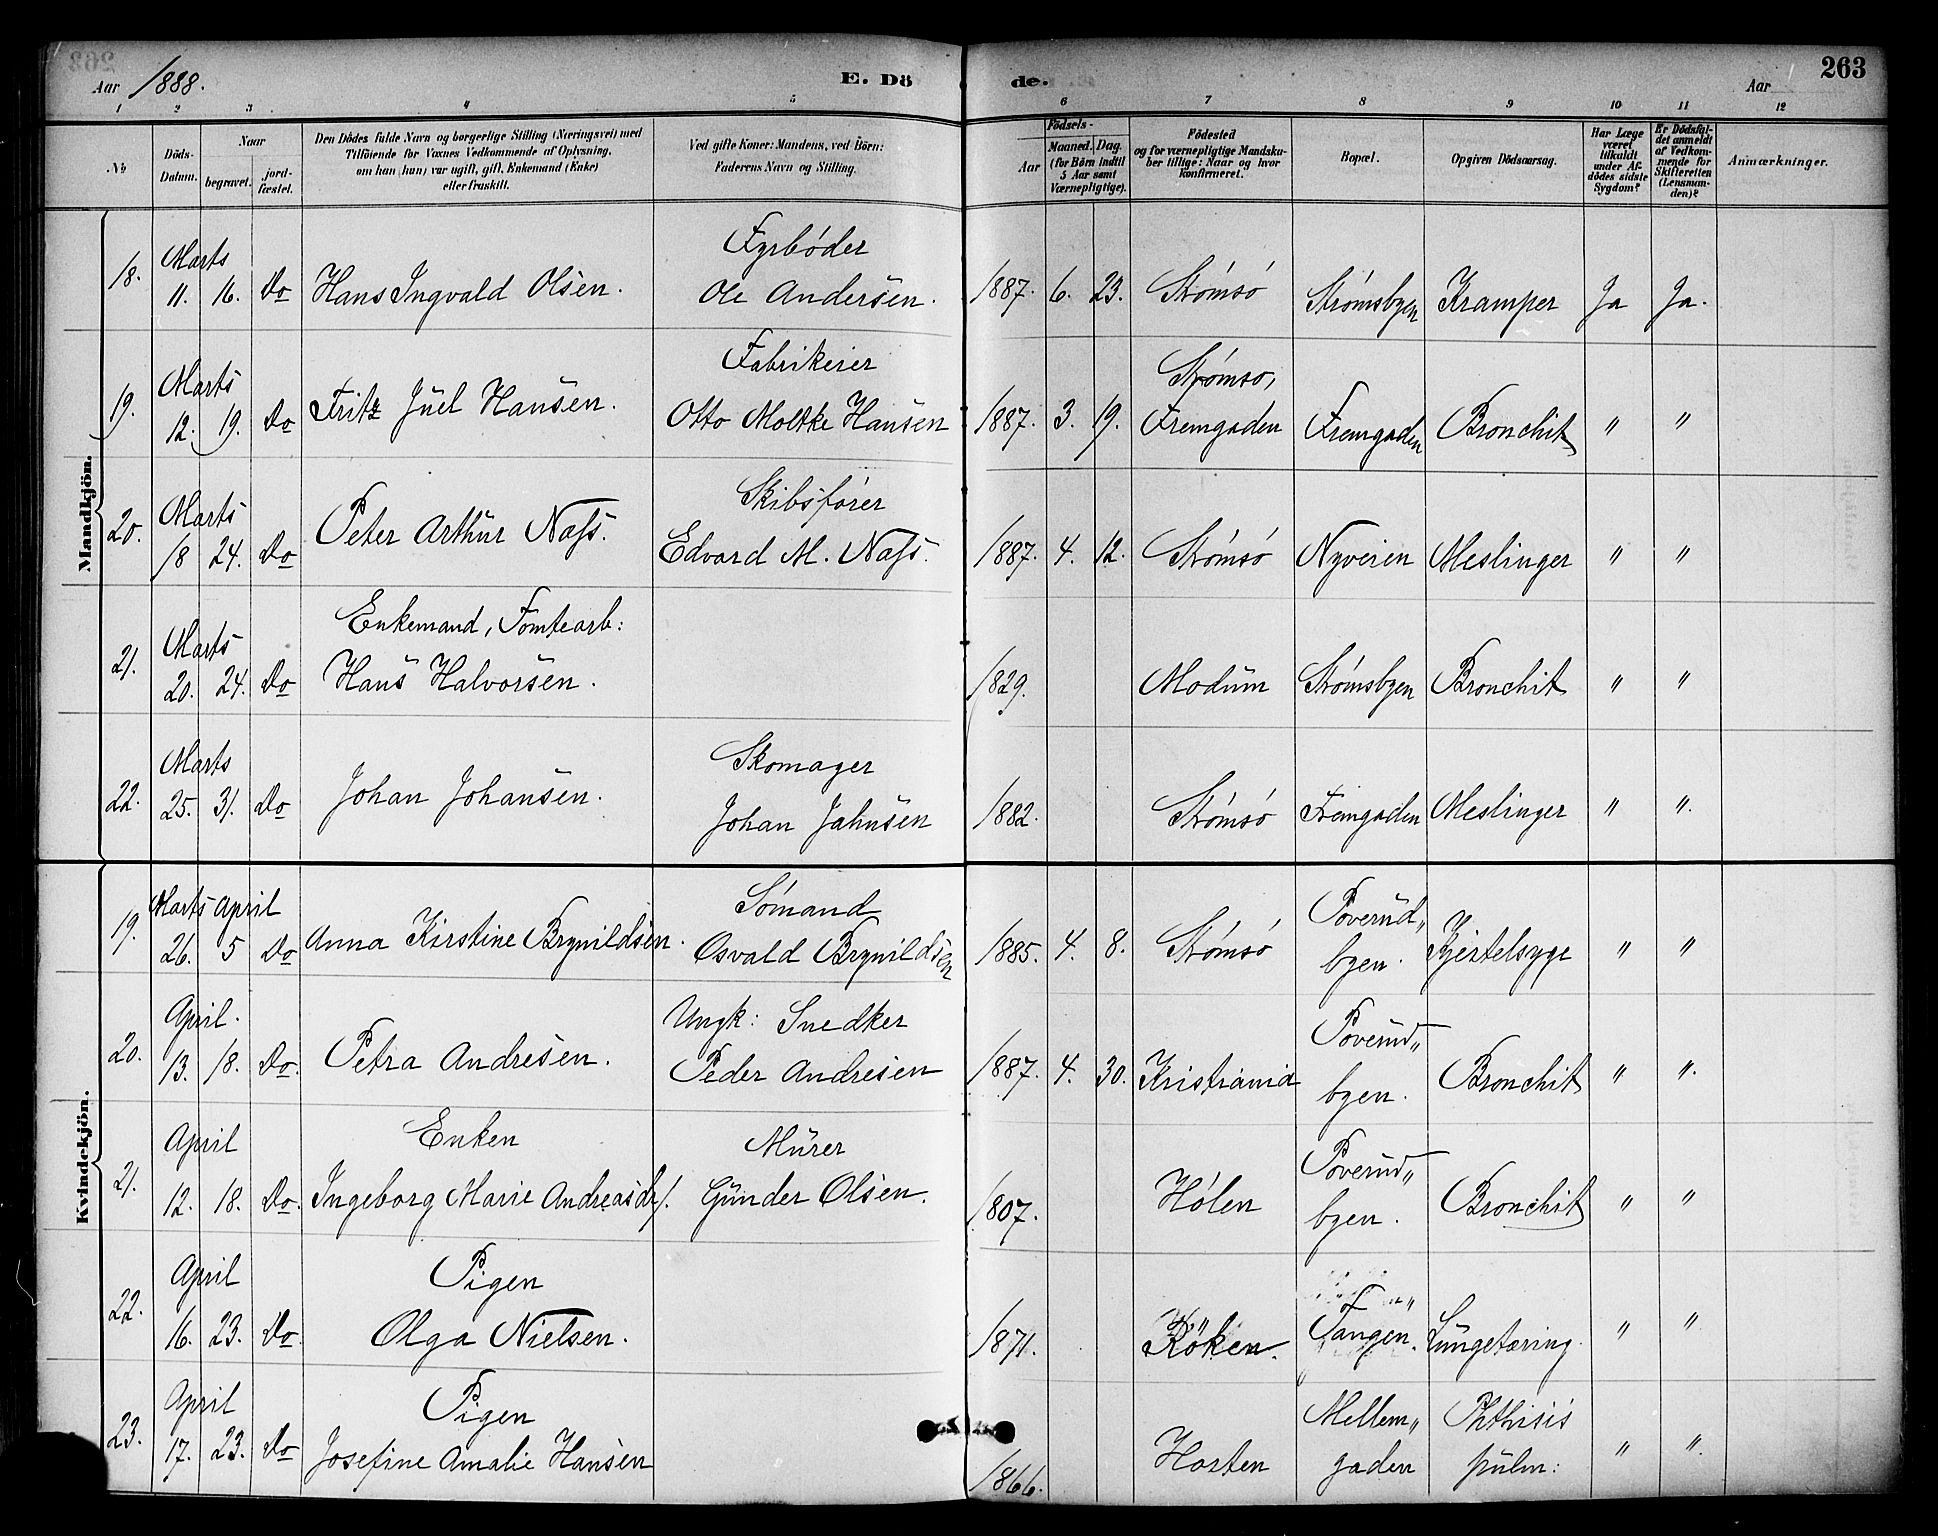 Aar 1888. E. Dö de. Aar 263
1 2 3 4 5 6 7 8 9 10 11 12
No Döds-Datum. Naar begravet. jordfæstet. Den Dödes fulde Navn og borgerlige Stilling (Næringsvei) med Tilföiende for Voxnes Vedkommende af Oplysning, om han (hun) var ugift, gift, Enkemand (Enke) eller fraskilt. Ved gifte Koner: Mandens, ved Börn: Faderens Navn og Stilling. Födsels- Aar Maaned. Dag. (for Börn indtil 5 Aar samt Værnepligtige). Födested og for værnepligtige Mandskaber tillige: Naar og hvor konfirmeret. Bopæl. Opgiven Dödsaarsag. Har Læge været tilkaldt under Afdödes sidste Sygdom? Er Dödsfaldet anmeldt af Vedkommende for Skifteretten (Lensmanden)? Anmærkninger.
Mandkjön.
Marts Fyrbøder
18. 11. 16. Do Hans Ingvald Olsen. Ole Andersen. 1887. 6. 23. Strømsø Strømsbyen Kramper Ja Ja.
Marts Fabrikeier Strømsø,
19. 12. 19. Do Fritz Juel Hansen. Otto Moltke Hansen 1887. 3. 19. Fremgaden Fremgaden Bronchit " "
Marts Skibsfører
20. 18 24. Do Peter Arthur Nass. Edvard M. Nass. 1887. 4. 12. Strømsø Nyveien Meslinger " "
Marts Enkemand, Tomtearb:
21. 20. 24. Do Hans Halvorsen. 1829. Modum Strømsbyen Bronchit " "
Marts Skomager
22. 25. 31. Do Johan Johansen. Johan Jahnsen 1882. Strømsø Fremgaden Meslinger " ".
Kvindekjön.
Marts April Sømand Toverud„
19. 26. 5 Do Anna Kirstine Brynildsen. Osvald Brynildsen 1885. 4. 8. Strømsø byen. Kjertelsyge " "
April. Ungk: Snedker Toverud„
20. 13. 18. Do. Petra Andresen. Peder Andresen 1887. 4. 30. Kristiania byen. Bronchit " ".
April Enken Murer Toverud„
21. 12. 18. Do. Ingeborg Marie Andreasdr/. Gunder Olsen. 1807. Hølen byen. Bronchit " "
April Pigen
22. 16. 23. Do Olga Nielsen. 1871. Röken. Tangen. Lungetæring. " "
April Pigen Mellem„ Phthisis
23. 17. 23. Do Josefine Amalie Hansen 1866. Horten gaden pulm: " ".